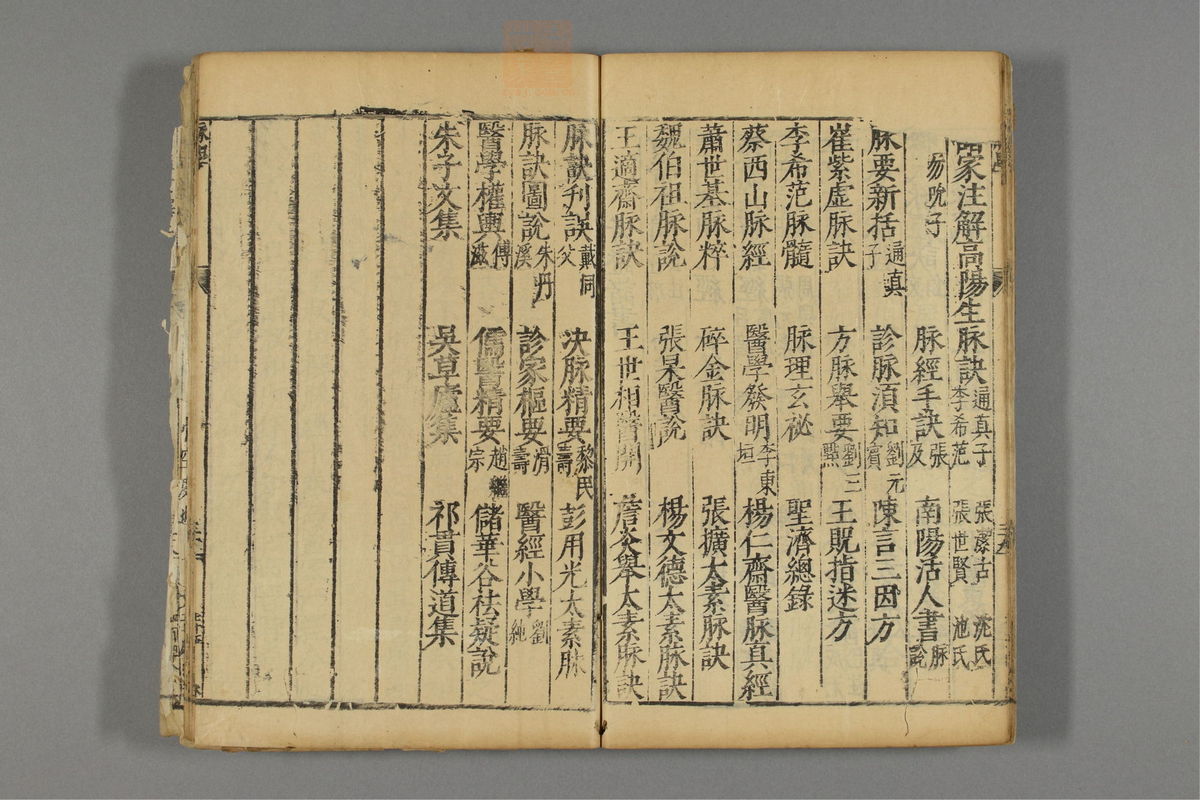 家注解高陽生脉訣 通真子 李希范 張潔古 張世賢 沈氏 池氏
勿听子 脉經手訣 張及 南陽活人書 脉說
脉要新括 通真子 診脉須知 劉元賓 陳言三因方
崔紫虛脉訣 方脉舉要 劉三點 王貺指迷方
李希范脉髓 脉理玄祕 聖濟總錄
蔡西山脉經 醫學發明 李東垣 楊仁齋醫脉真經
蕭世基脉粹 碎金脉訣 張擴太素脉訣
魏伯祖脉說 張杲醫說 楊文德太素脉訣
王適齋脉訣 王世相醫開 詹炎舉太素脉訣
脉訣刊誤 戴同父 決脉精要 黎民壽 彭用光太素脉
脉訣圖說 朱丹溪 診家樞要 滑壽 醫經小學 劉純
醫學權輿 傅滋 儒醫精要 趙繼宗 儲華谷祛疑說
朱子文集 吳草廬集 祁貫傳道集